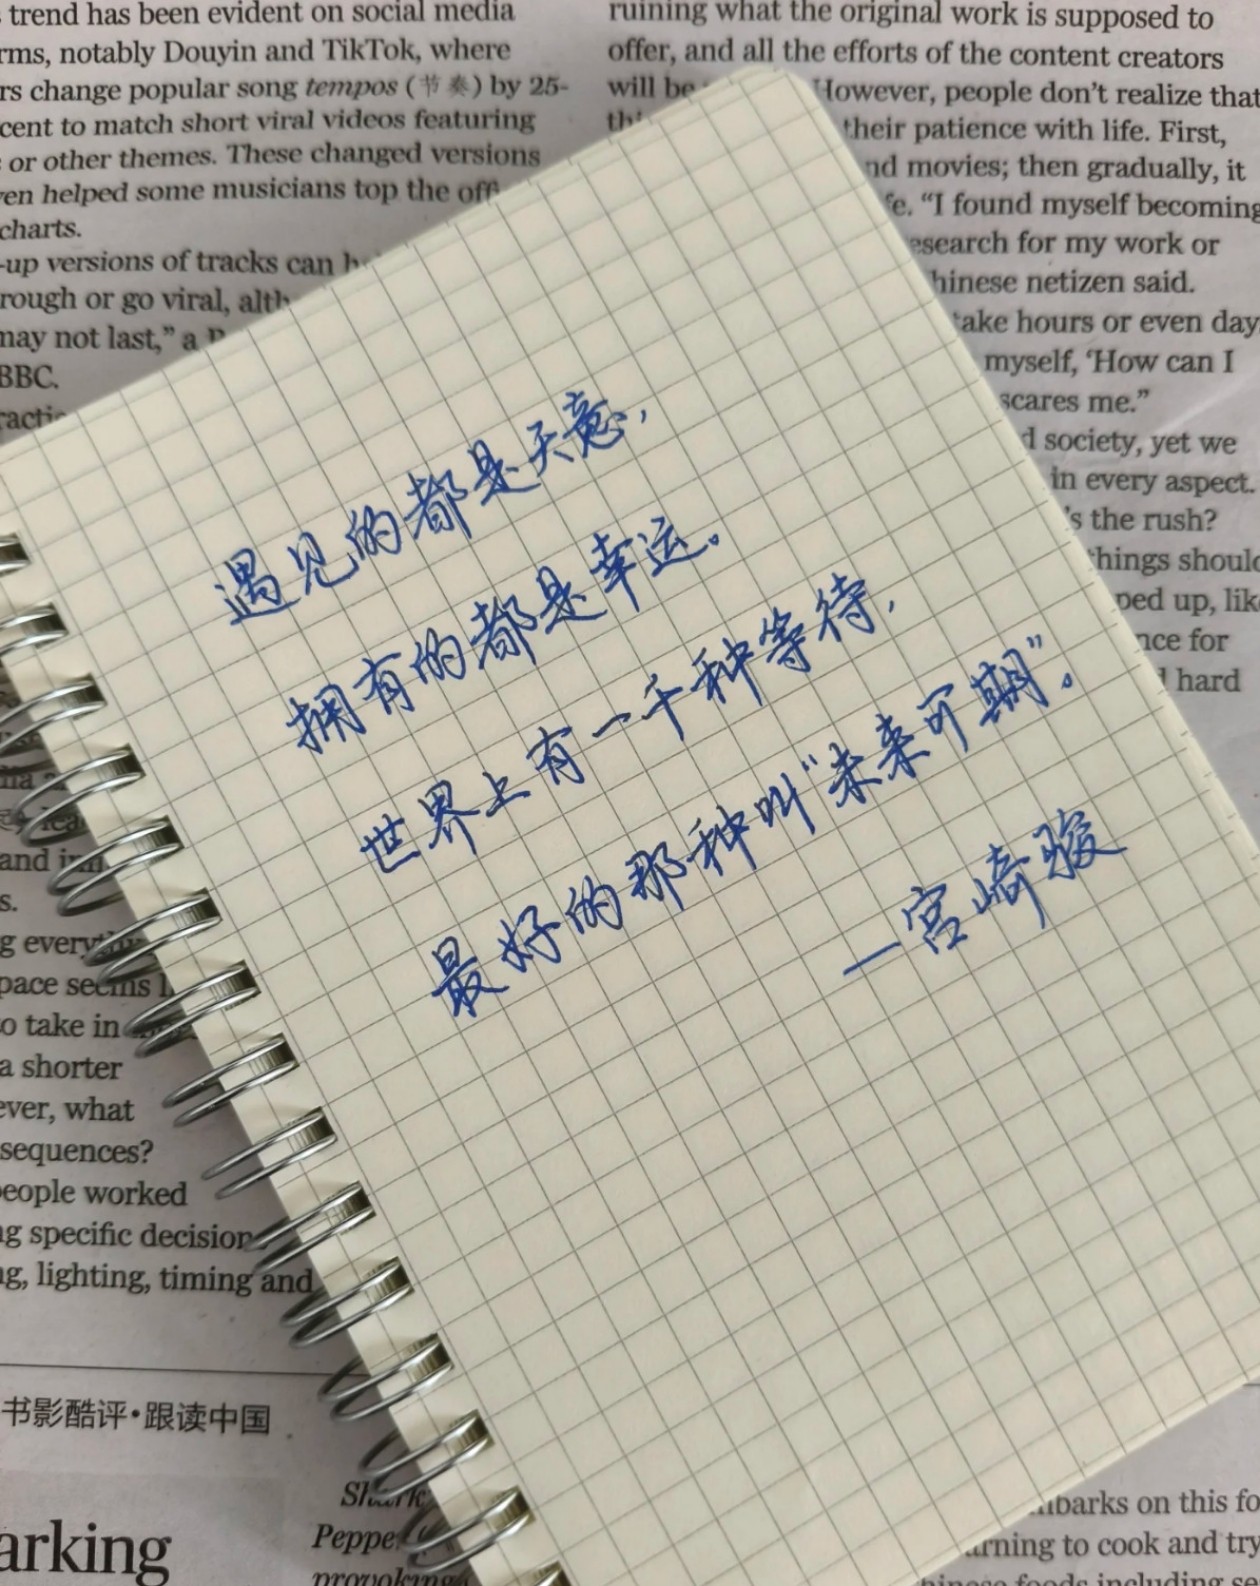 trend has been evident on social media
rms, notably Douyin and TikTok, where
rs change popular song tempos (节奏) by 25-
cent to match short viral videos featuring
or other themes. These changed versions
en helped some musicians top the off
charts.
-up versions of tracks can h
rough or go viral, alth
may not last,” a
BBC.
racti
ruining what the original work is supposed to
offer, and all the efforts of the content creators
will be However, people don’t realize that
thi their patience with life. First,
nd movies; then gradually, it
fe. “I found myself becoming
esearch for my work or
hinese netizen said.
take hours or even day
myself, ‘How can I
scares me.”
d society, yet we
in every aspect.
’s the rush?
things should
ped up, lik
nce for
l hard
遇见的都是天意，
拥有的都是幸运。
世界上有一千种等待，
最好的那种叫“未来可期”。
—宫崎骏
and
s.
g everythin
pace seems
o take in
a shorter
ever, what
sequences?
people worked
ng specific decision
ng, lighting, timing and
书影酷评•跟读中国
arking
Shark
Peppe
provoking
mbarks on this fo
arning to cook and try
hinese foods including se